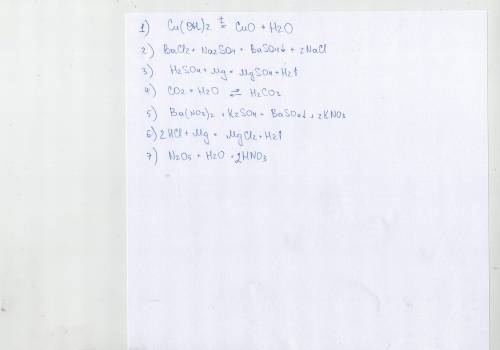 1) Cu(OH)2 t= CuO + H2O
2) BaCl2 + Na2SO4 = BaSO4↓ + 2NaCl
3) H2SO4 + Mg = MgSO4 + H2↑
4) CO2 + H2O ⇌ H2CO3
5) Ba(NO3)2 + K2SO4 = BaSO4↓ + 2KNO3
6) 2HCl + Mg = MgCl2 + H2↑
7) N2O5 + H2O = 2HNO3